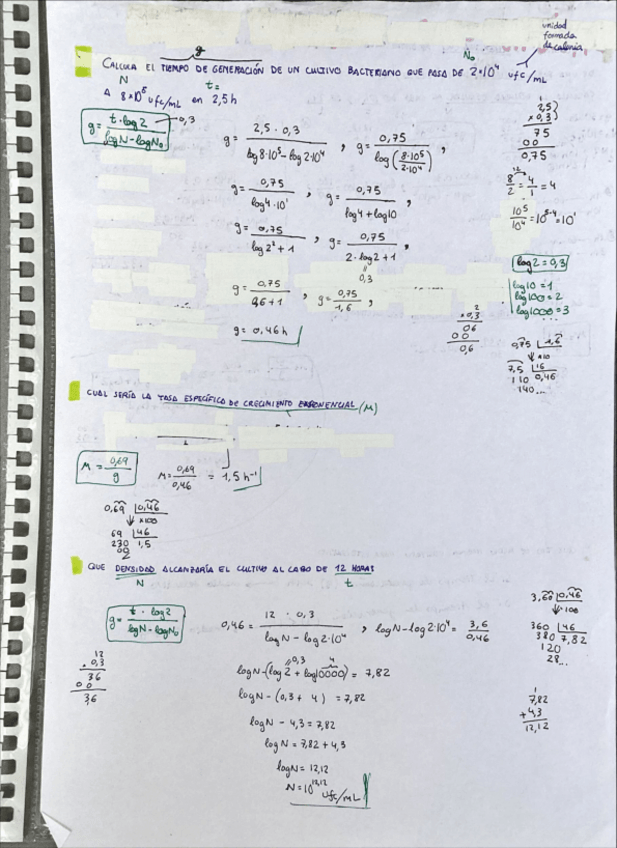 unidad
formada
de colonia
g
N₀
CALCULA EL TIEMPO DE GENERACIÓN DE UN CULTIVO BACTERIANO QUE PASA DE 2·10⁴ ufc/mL
N t=
A 8·10⁵ ufc/mL en 2,5h
g = t·log2 / logN-logN₀
0,3
g = 2,5·0,3 / log8·10⁵-log2·10⁴ , g = 0,75 / log(8·10⁵/2·10⁴) ,
g = 0,75 / log4·10¹ , g = 0,75 / log4+log10 ,
g = 0,75 / log2²+1 , g = 0,75 / 2·log2+1 ,
0,3
g = 0,75 / 0,6+1 , g = 0,75 / 1,6 ,
g = 0,46h
1
2,5
x0,3
75
00
0,75
12
8/2 = 4/1 = 4
10⁵/10⁴ = 10⁵⁻⁴ = 10¹
log2=0,3
log10=1
log100=2
log1000=3
2
x0,3
06
00
0,6
0,75 1,6
↓ x10
7,5 16
110 0,46
140...
CUAL SERÍA LA TASA ESPECÍFICA DE CRECIMIENTO EXPONENCIAL (M)
M = 0,69 / g
M = 0,69 / 0,46 = 1,5 h⁻¹
0,69 0,46
↓ x100
69 46
230 1,5
00
2
QUE DENSIDAD ALCANZARÍA EL CULTIVO AL CABO DE 12 HORAS
N t
g = t·log2 / logN-logN₀
0,46 = 12·0,3 / logN-log2·10⁴ , logN-log2·10⁴ = 3,6 / 0,46
0,3 4
logN-(log2+log10000) = 7,82
logN-(0,3+4) = 7,82
logN-4,3 = 7,82
logN = 7,82+4,3
logN = 12,12
N = 10¹²,¹² ufc/mL
12
·0,3
36
00
3,6
3,60 0,46
↓ ·100
360 46
380 7,82
120
28...
1
7,82
+4,3
12,12